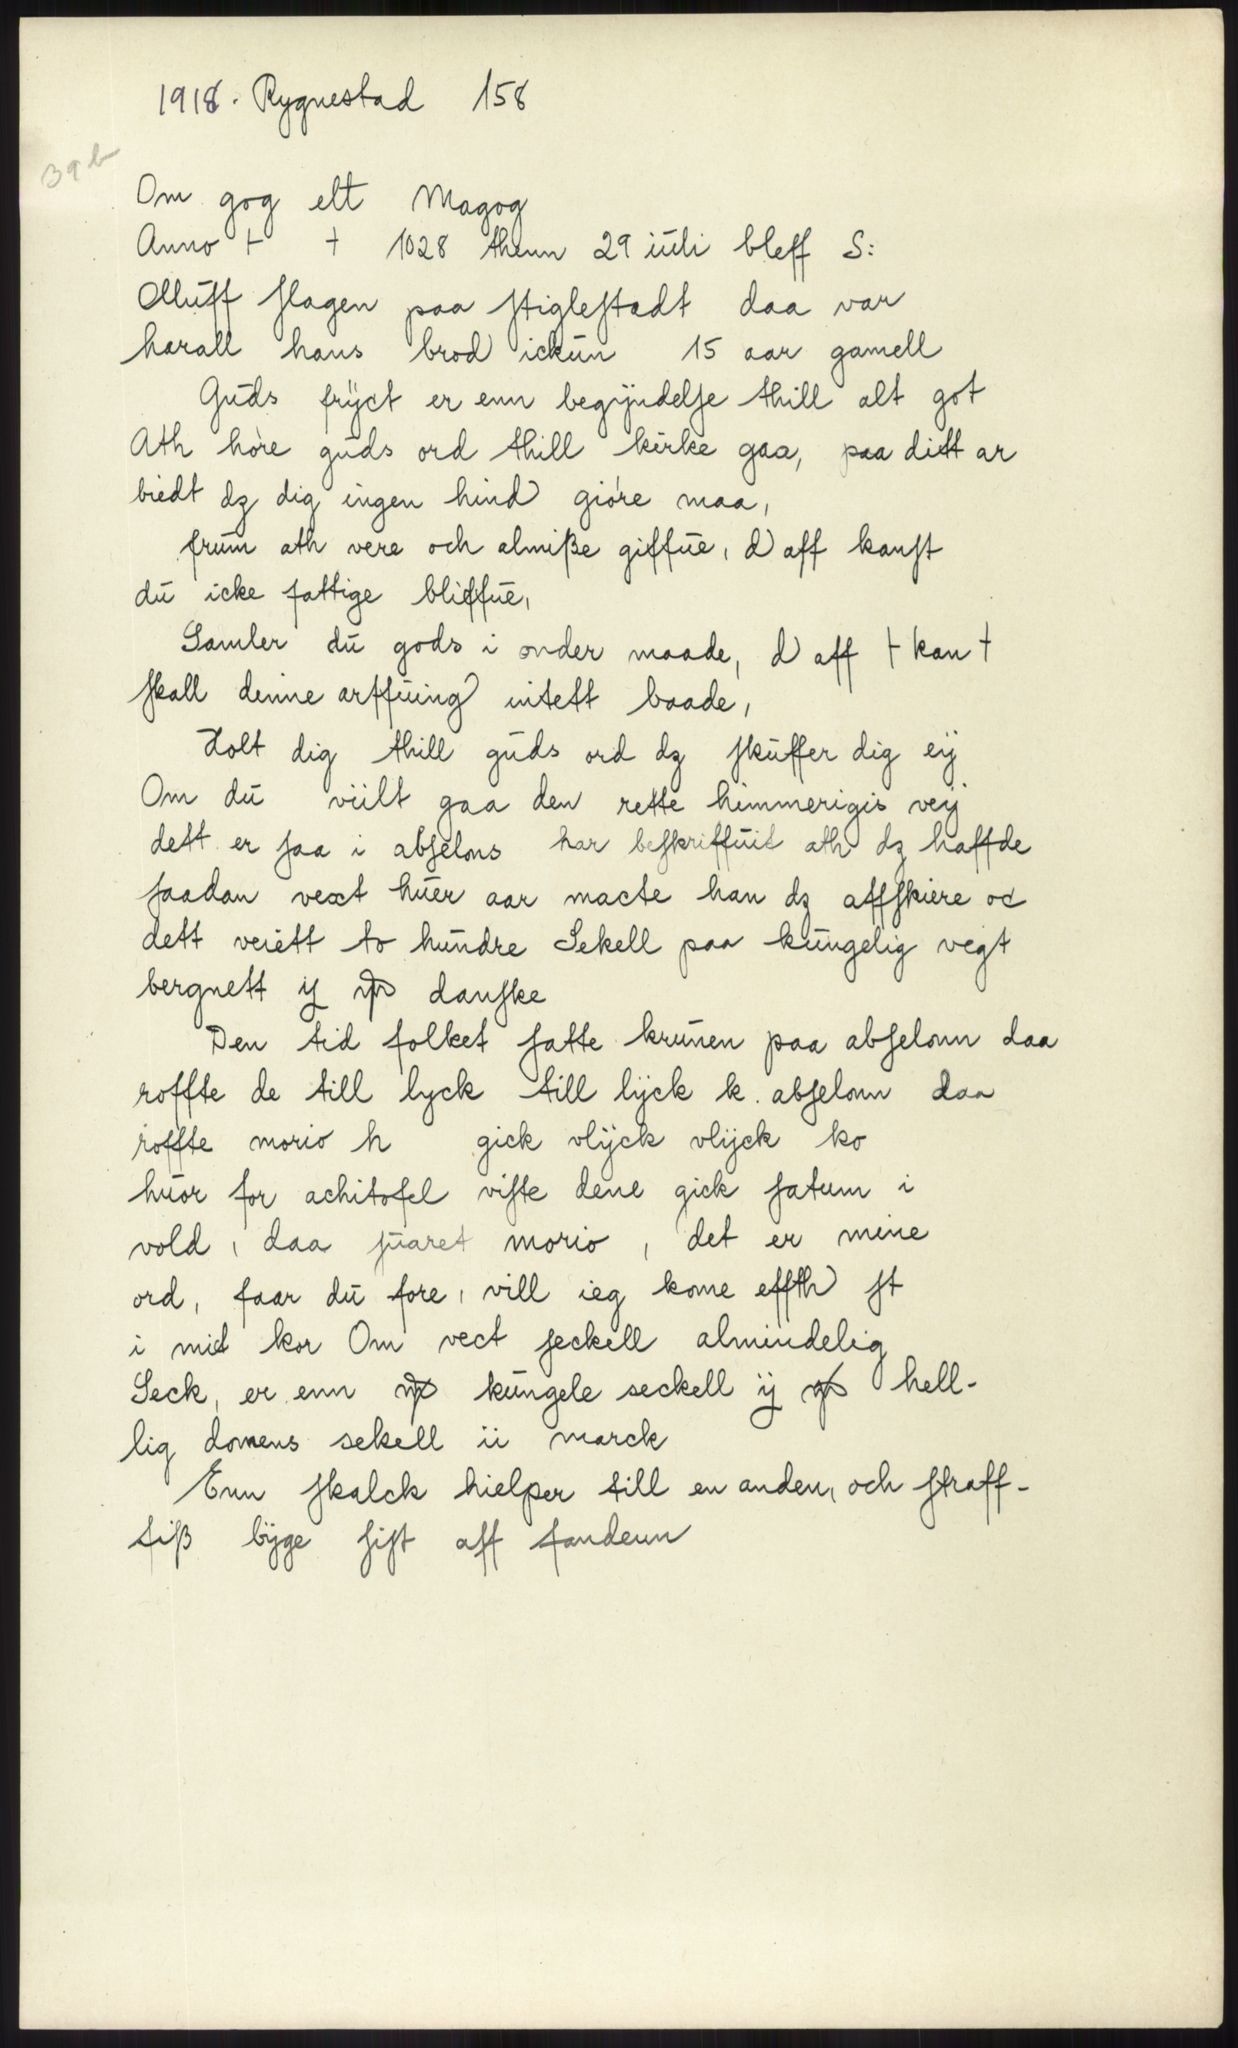 1918. Rygnestad 158
39b
Om gog elt Magog
Anno + + 1028 thenn 29 iuli bleff S:
Olluff slagen paa stiglestadt daa var
harall hans brod ickun 15 aar gamell
Guds frÿct er enn begÿndelse thill alt got
Ath høre guds ord thill kirke gaa, paa ditt ar
biedt dz dig ingen hind giøre maa,
frum ath vere och almiße giffue, d aff kanst
du icke fattige bliffue,
Samler du gods i onder maade, d aff + kan +
skall denne arffuing intett baade,
Holt dig thill guds ord dz skuffer dig eÿ
Om du viilt gaa den rette himmerigis veÿ
dett er saa i abselons har beskriffuit ath dz haffde
saadan vext huer aar macte han dz affskiere oc
dett veiett to hundre Sekell paa kungelig vegt
bergnett ij ℔ danske
Den tid folket satte krunen paa abselonn daa
roffte de till lyck till lÿck k. abselonn daa
roffte morio h gick vlÿck vlÿck ko
huor for achitofel viste dene gick satum i
vold, daa suaret morio, det er mine
ord, faar du fore, vill ieg kome effth st
i mid kor Om vect seckell almindelig
Seck, er enn ℔ kungele seckell ij ℔ hell-
lig domens sekell ii marck
Enn skalck hielper till en anden, och straff-
tiß bÿge sist aff fandenn